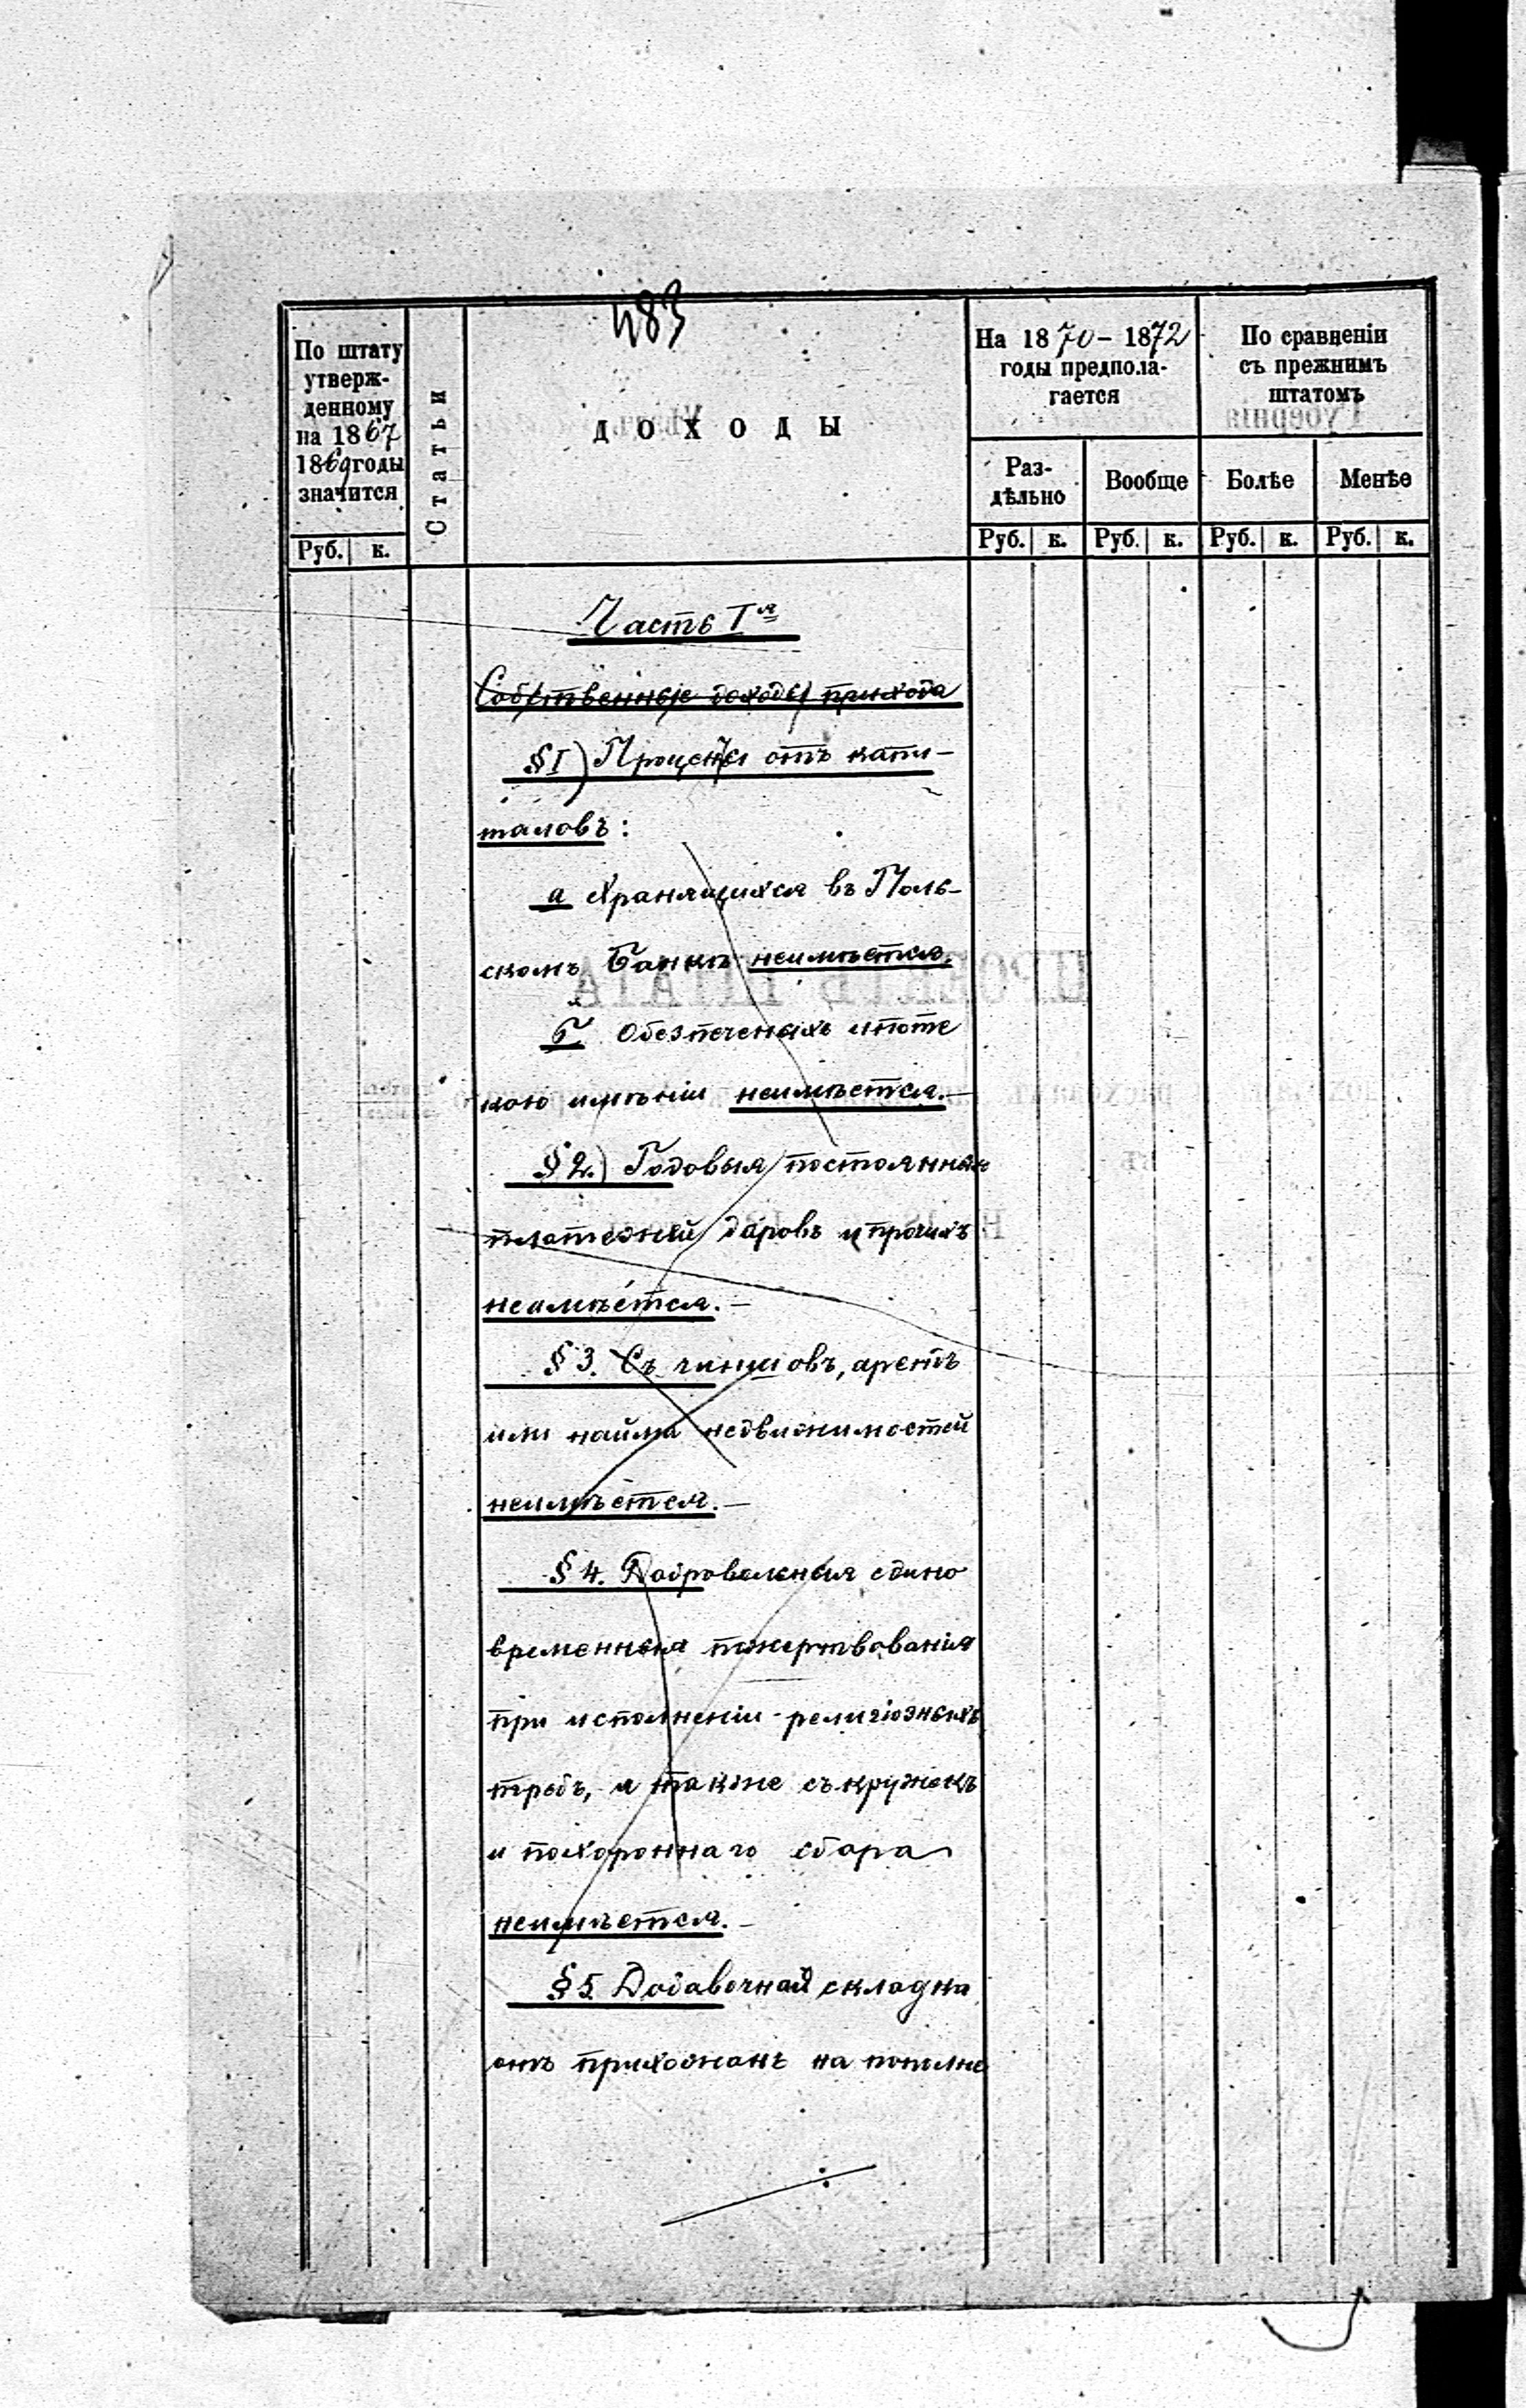 483
По штату
утверж-
денному
на 1867
1869 годы
значится
Статьи
ДОХОДЫ
На 1870-1872
годы предпола-
гается
По сравненіи
съ прежнимъ
штатомъ
Раз-
дѣльно
Вообще
Болѣе
Менѣе
Руб. к.
Руб. к.
Руб. к.
Руб. к.
Руб. к.
Часть Iя
Собственные доходы прихода
§ I) Проценты отъ капи-
таловъ:
а хранящихся въ Поль-
скомъ Банкѣ неимѣется.
б. Обезпеченыхъ ипоте
кою имѣніи неимѣется.—
§ 2.) Годовыя постоянныя
платежей даровъ и прочихъ
неимѣется.—
§ 3. Съ чиншовъ, арентъ
или найма недвижимостей
неимѣется.—
§ 4. Добровольныя едино
временныя пожертвованія
при исполненіи религіозныхъ
требъ, и также съ кружекъ
и похороннаго сбора
неимѣется.—
§ 5. Добавочная складка
отъ прихожанъ на пополне